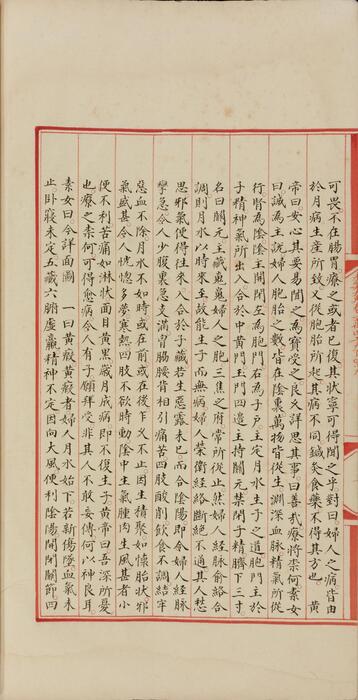 可畏不在腸胃療之或者已復其狀寧可得聞之乎對曰婦人之病皆由
於月病生産所致又從胞胎所起其病不同鍼灸食藥不得其方也　黄
帝曰安心其要易聞之為寳受之良久詳思其事曰善哉療将柰何素女
曰誠為主説婦人胞胎之數皆在陰裏萬物皆從生淵深血脉精氣所從
行腎為陰陰主開閉左為胞門右為子户主定月水主子之道胞門主於
子精神氣所出入合於中黄門玉門四邉主持關元禁閉子精臍下三寸
名曰關元主藏魂魄婦人之胞三焦之府常所從止然婦人經脉俞絡合
調則月水以時來主故能生子而無病婦人榮衛經絡斷絶不通其人愁
思邪氣便得往來入合於子藏若生惡露未已而合陰陽即令婦人經脉
攣急令人少腹裏急支滿胃腸腰背相引痛苦四肢酸削飲食不調結牢
惡血不除月水不如時或在前或在後乍乂不止因生積聚如懐胎狀邪
氣盛甚令人恍惚多夢寒熱四肢不欲時動陰中生氣腫肉生風甚者小
便不利苦痛如淋狀面目黄黒歳月成病即不復生子黄帝曰吾深所憂
也療之柰何可得愈病令人有子願拜受非其人不敢妄傳何以神良耳
素女曰今詳面圖　一曰黄瘕黄瘕者婦人月水始下若新傷墮血氣未
止卧寢未定五藏六腑虚羸精神不定因向大風便利陰陽開閉關節四